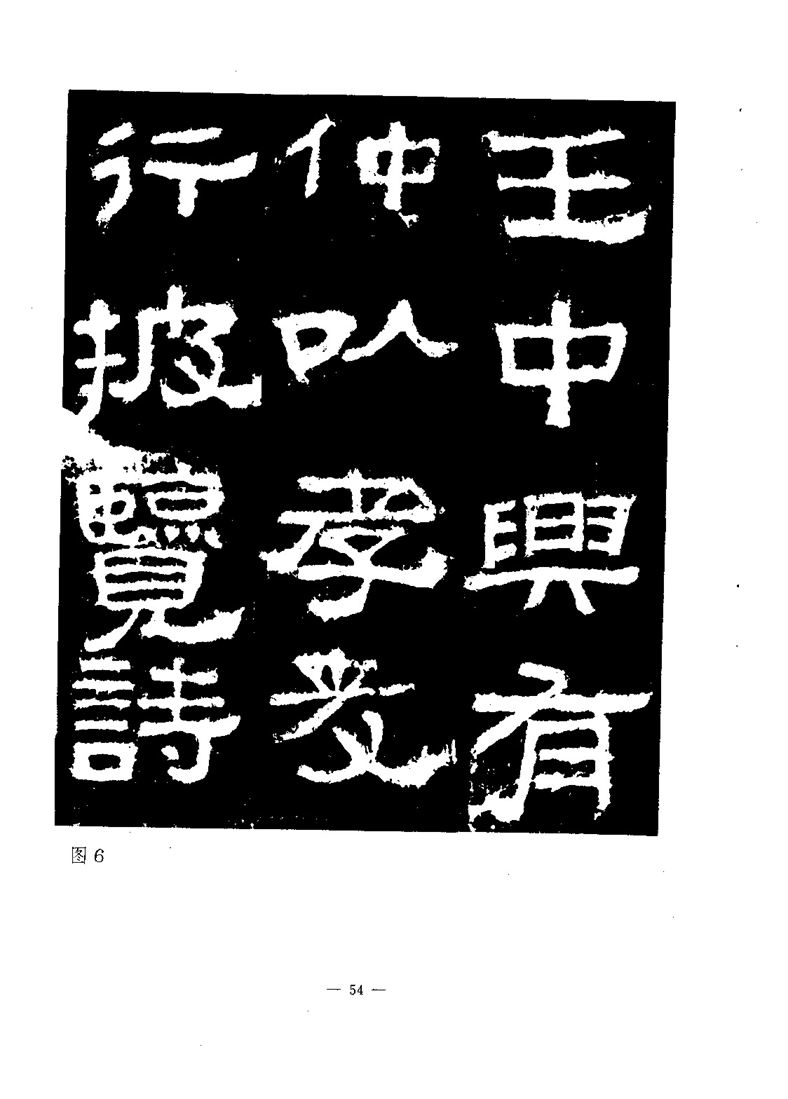 王中興有
仲以孝友
行披覽詩
图6
— 54 —